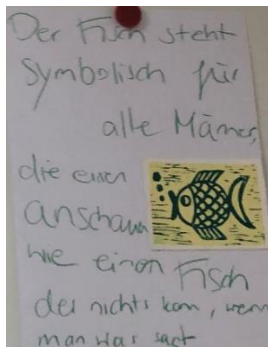 Der Fisch steht
symbolisch für
alle Männer,
die einen
anschaun
wie einen Fisch
der nichts kann, wenn
man was sagt